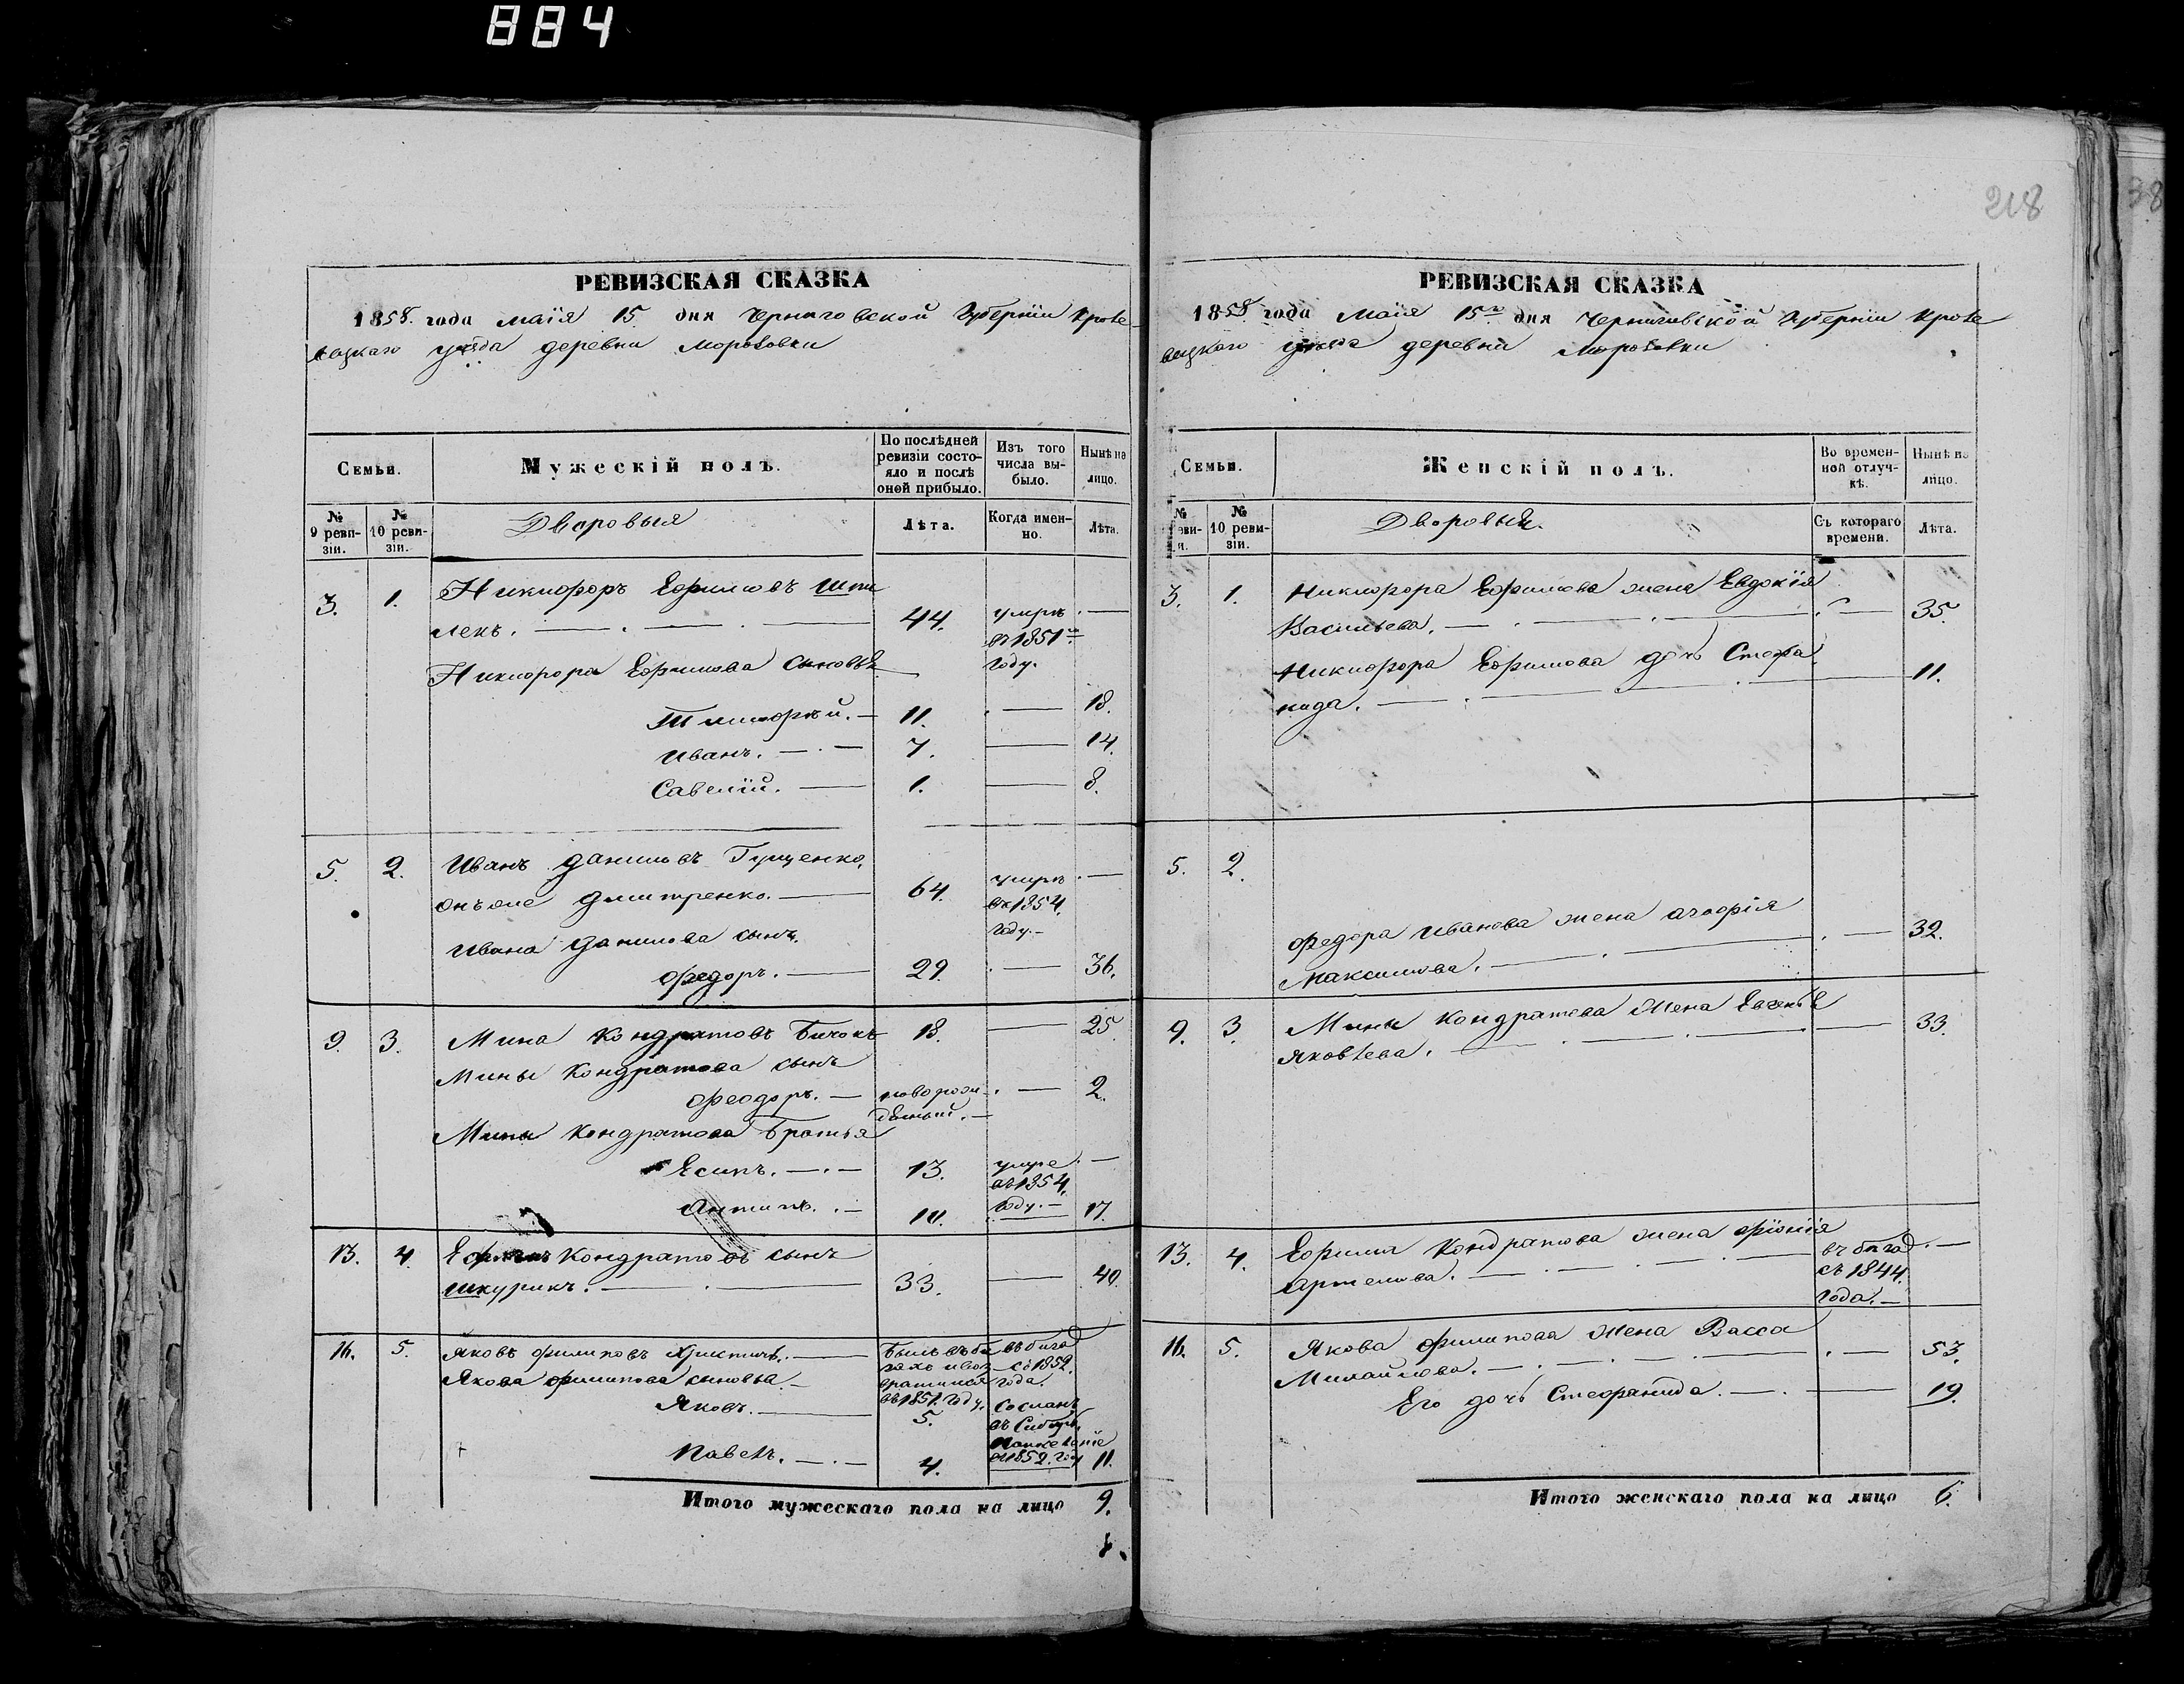 884
218
38
РЕВИЗСКАЯ СКАЗКА
1858. года маїя 15 дня Черниговской Губерніи Кроле
вецкаго уѣзда деревни Морозовки
Семьи.
Мужескій полъ.
По послѣдней ревизіи состояло и послѣ оной прибыло.
Изъ того числа выбыло.
Нынѣ на лицо.
№ 9 ревизіи.
№ 10 ревизіи.
Дворовыя
Лѣта.
Когда именно.
Лѣта.
3. 1. Никифоръ Ефимовъ Шпи
лекъ. 44. умре въ 1851м году.
Никифора Ефимова сыновья
Тимофей. 11. 18.
Иванъ. 7. 14.
Савелій. 1. 8.
5. 2. Иванъ Даниловъ Гущенко,
онъ же Дмитренко. 64. умре въ 1854. году.
Ивана Данилова сынъ.
Федоръ. 29. 36.
9. 3. Мина Кондратовъ Бичокъ 18. 25.
Мины Кондратова сынъ
Феодоръ. новорожденный. 2.
Мины Кондратова Братья
Есипъ. 13. умре въ 1854. году.
Антипъ. 10. 17.
13. 4. Ефимъ Кондратовъ сынъ
Шкурикъ. 33. 40.
16. 5. Яковъ Филиповъ Христичъ. Былъ въ бѣгахъ и возвратился въ 1851. году. въ бѣгах съ 1852. года.
Якова Филипова сыновья.
Яковъ. 5. Сосланъ въ Сибирь на поселеніе въ 1852. году
Павелъ. 4. 11.
Итого мужескаго пола на лицо 9.
РЕВИЗСКАЯ СКАЗКА
1858 года Маїя 15го дня Черниговской Губерніи Кроле
вецкаго уѣзда деревни Морозовки
Семьи.
Женскій полъ.
Во временной отлучкѣ.
Нынѣ на лицо.
№ реви
№ 10 ревизіи.
Дворовыя.
Съ котораго времени.
Лѣта.
3. 1. Никифора Ефимова жена Евдокія
Васильева. 35.
Никифора Ефимова дочь Стефа
нида. 11.
5. 2.
Федора Иванова жена
Максимова. 32.
9. 3. Мины Кондратова Жена
Яковлева. 33.
13. 4. Ефима Кондратова жена Фіонія
Артемова. въ бѣгах съ 1844. года.
16. 5. Якова Филипова Жена Васса
Михайлова. 53.
Его дочь Стефанида. 19.
Итого женскаго пола на лицо 6.